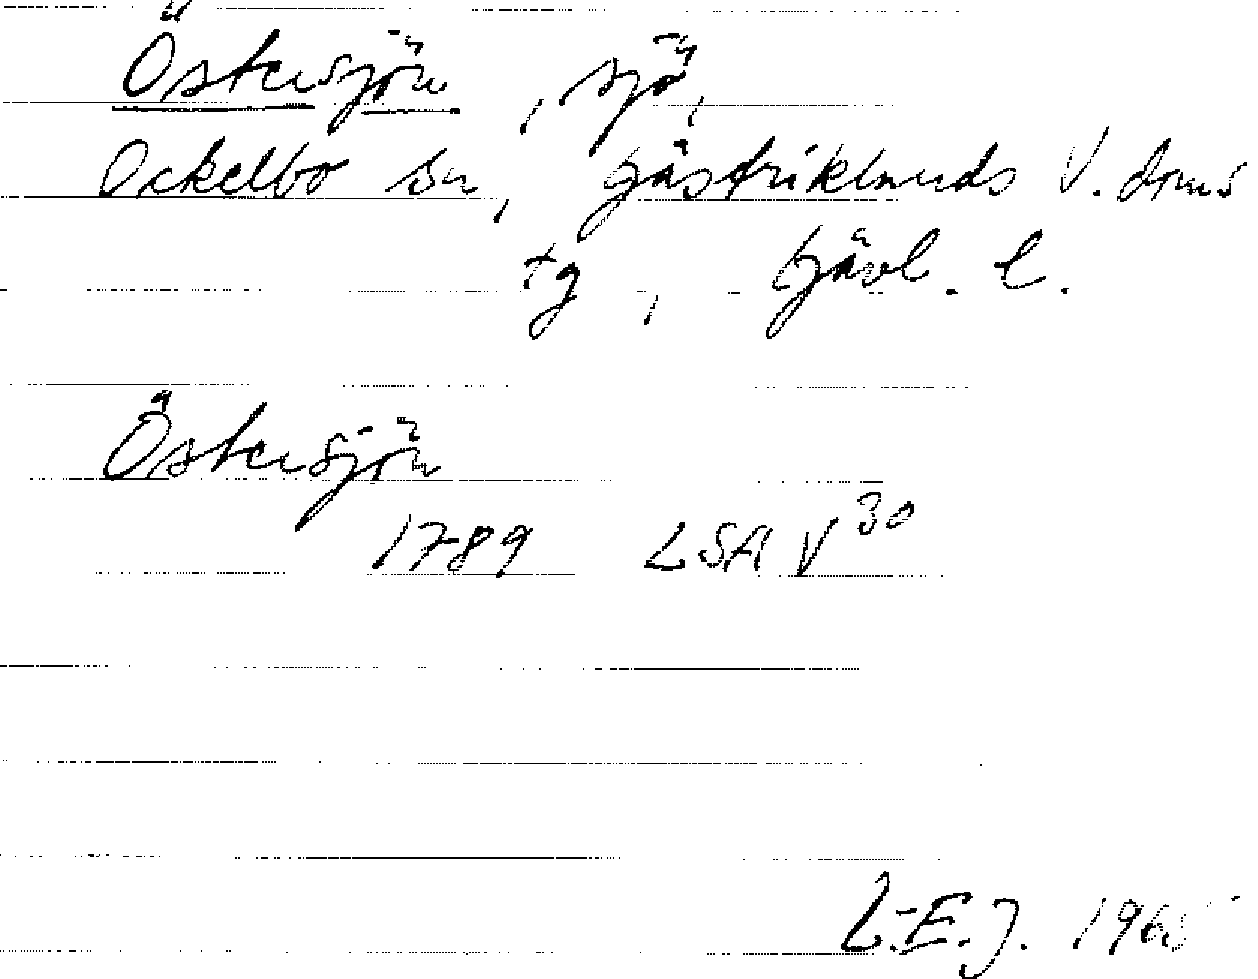 Östersjön, sjö,
Ockelbo sn, Gästriklands V. doms
tg, Gävl. l.
Östersjön
1789 LSA V 30
L-E.J. 1965